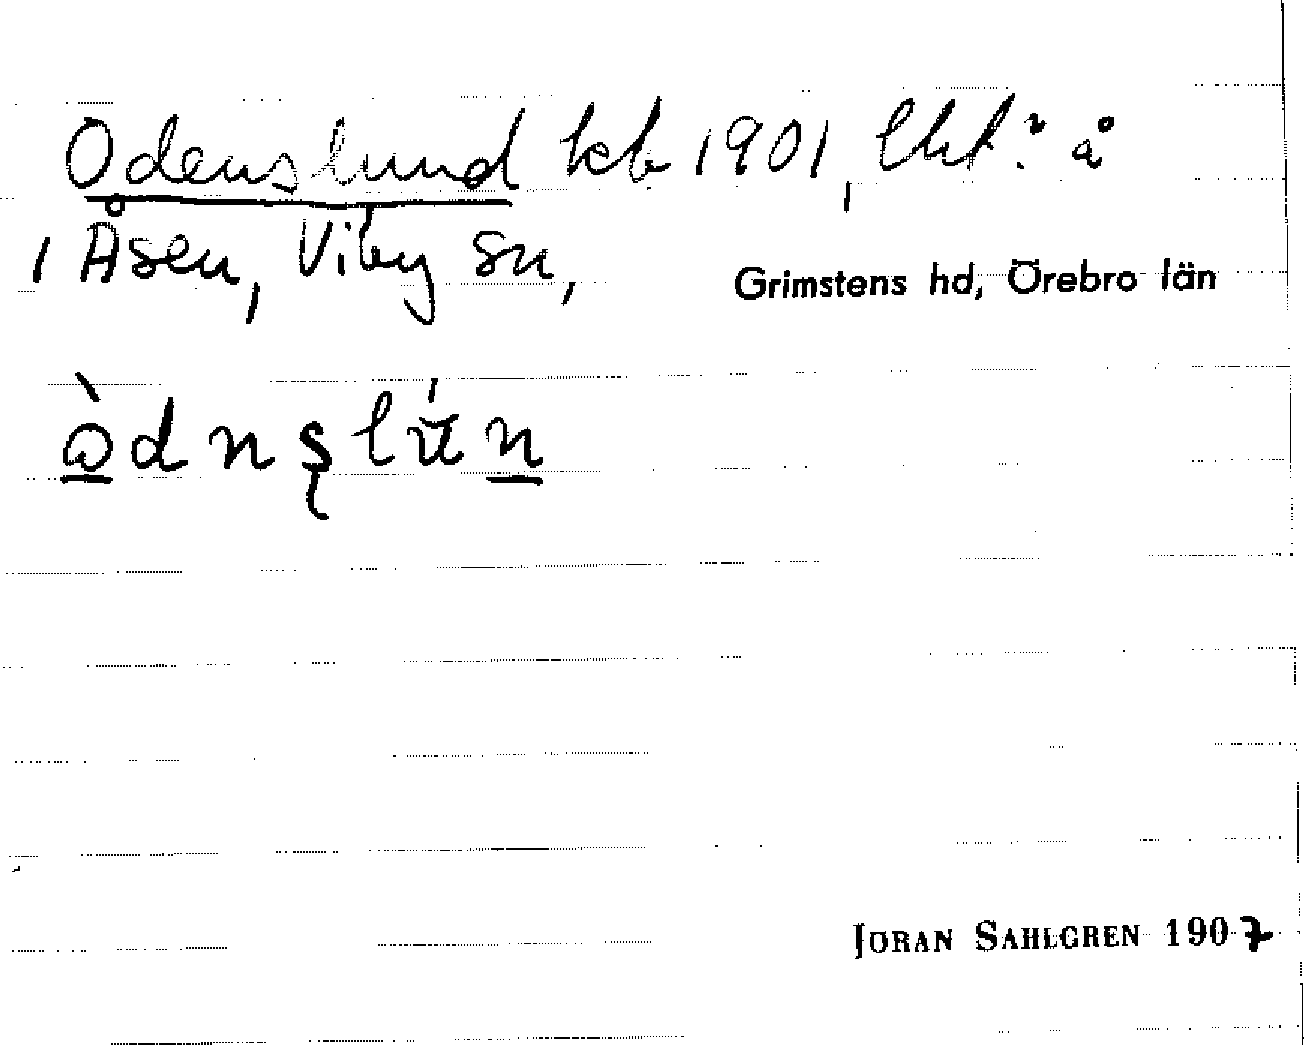 Odenslund kb 1901, lht: å
i Åsen, Viby sn,
Grimstens hd, Örebro län
JÖRAN SAHLGREN 1907